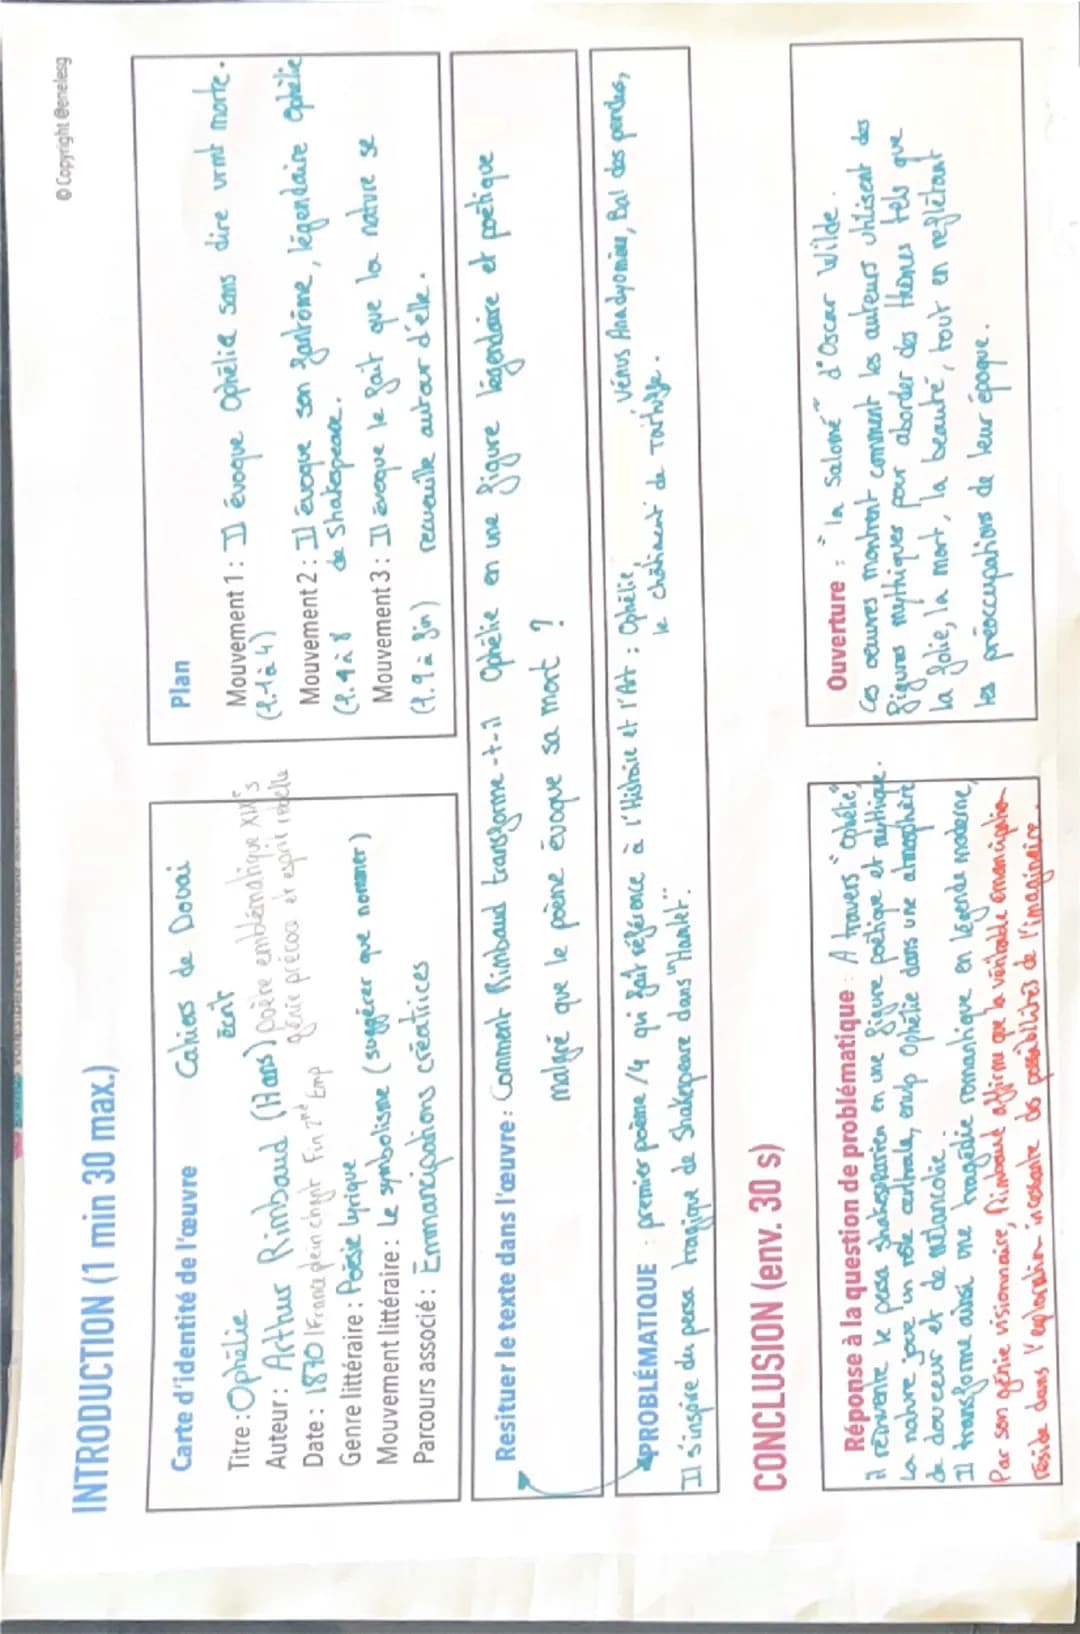 © Copyright @enelesg
INTRODUCTION (1 min 30 max.)
Carte d'identité de l'œuvre
Cahiers de Douai
Titre : Ophélie
écrit
Auteur : Arthur Rimbaud (17 ans) poère emblématique XIXe s
génie précoce et esprit rebelle
Date : 1870 | France plein chgmt Fin 2nd Emp
Genre littéraire : Poésie lyrique
Mouvement littéraire : Le symbolisme (suggérer que nommer)
Parcours associé : Emmancipations créatrices
Plan
Mouvement 1 : Il évoque Ophélie sans dire vrmt morte.
(l.1 à 4)
Mouvement 2 : Il évoque son fantôme, légendaire Ophélie
(l.4 à 8 de Shakespeare.
Mouvement 3 : Il évoque le fait que la nature se
(l.9 à fin) recueille autour d'elle.
Resituer le texte dans l'œuvre : Comment Rimbaud transforme-t-il Ophélie en une figure légendaire et poétique
malgé que le poème évoque sa mort ?
PROBLÉMATIQUE : premier poème /4 qui fait référence à l'Histoire et l'Art : Ophélie, Vénus Anadyomène, Bal des pendus,
le châtiment de Tartufe.
Il s'inspire du perso tragique de Shakespeare dans "Hamlet".
CONCLUSION (env. 30 s)
Réponse à la question de problématique : A travers "Ophélie",
il réinvente le perso shakespearien en une figure poétique et mythique.
La nature joue un rôle centrale, envlp Ophélie dans une atmosphère
de douceur et de mélancolie.
Il transforme ainsi une tragédie romantique en légende moderne,
Par son génie visionnaire, Rimbaud affirme que la véritable émancipation
réside dans l'exploration incessante des possibilités de l'imaginaire.
Ouverture : "la Salomé" d'Oscar Wilde.
Ces œuvres montrent comment les auteurs utilisent des
figures mythiques pour aborder des thèmes tels que
la folie, la mort, la beauté, tout en reflétant
les préoccupations de leur époque.